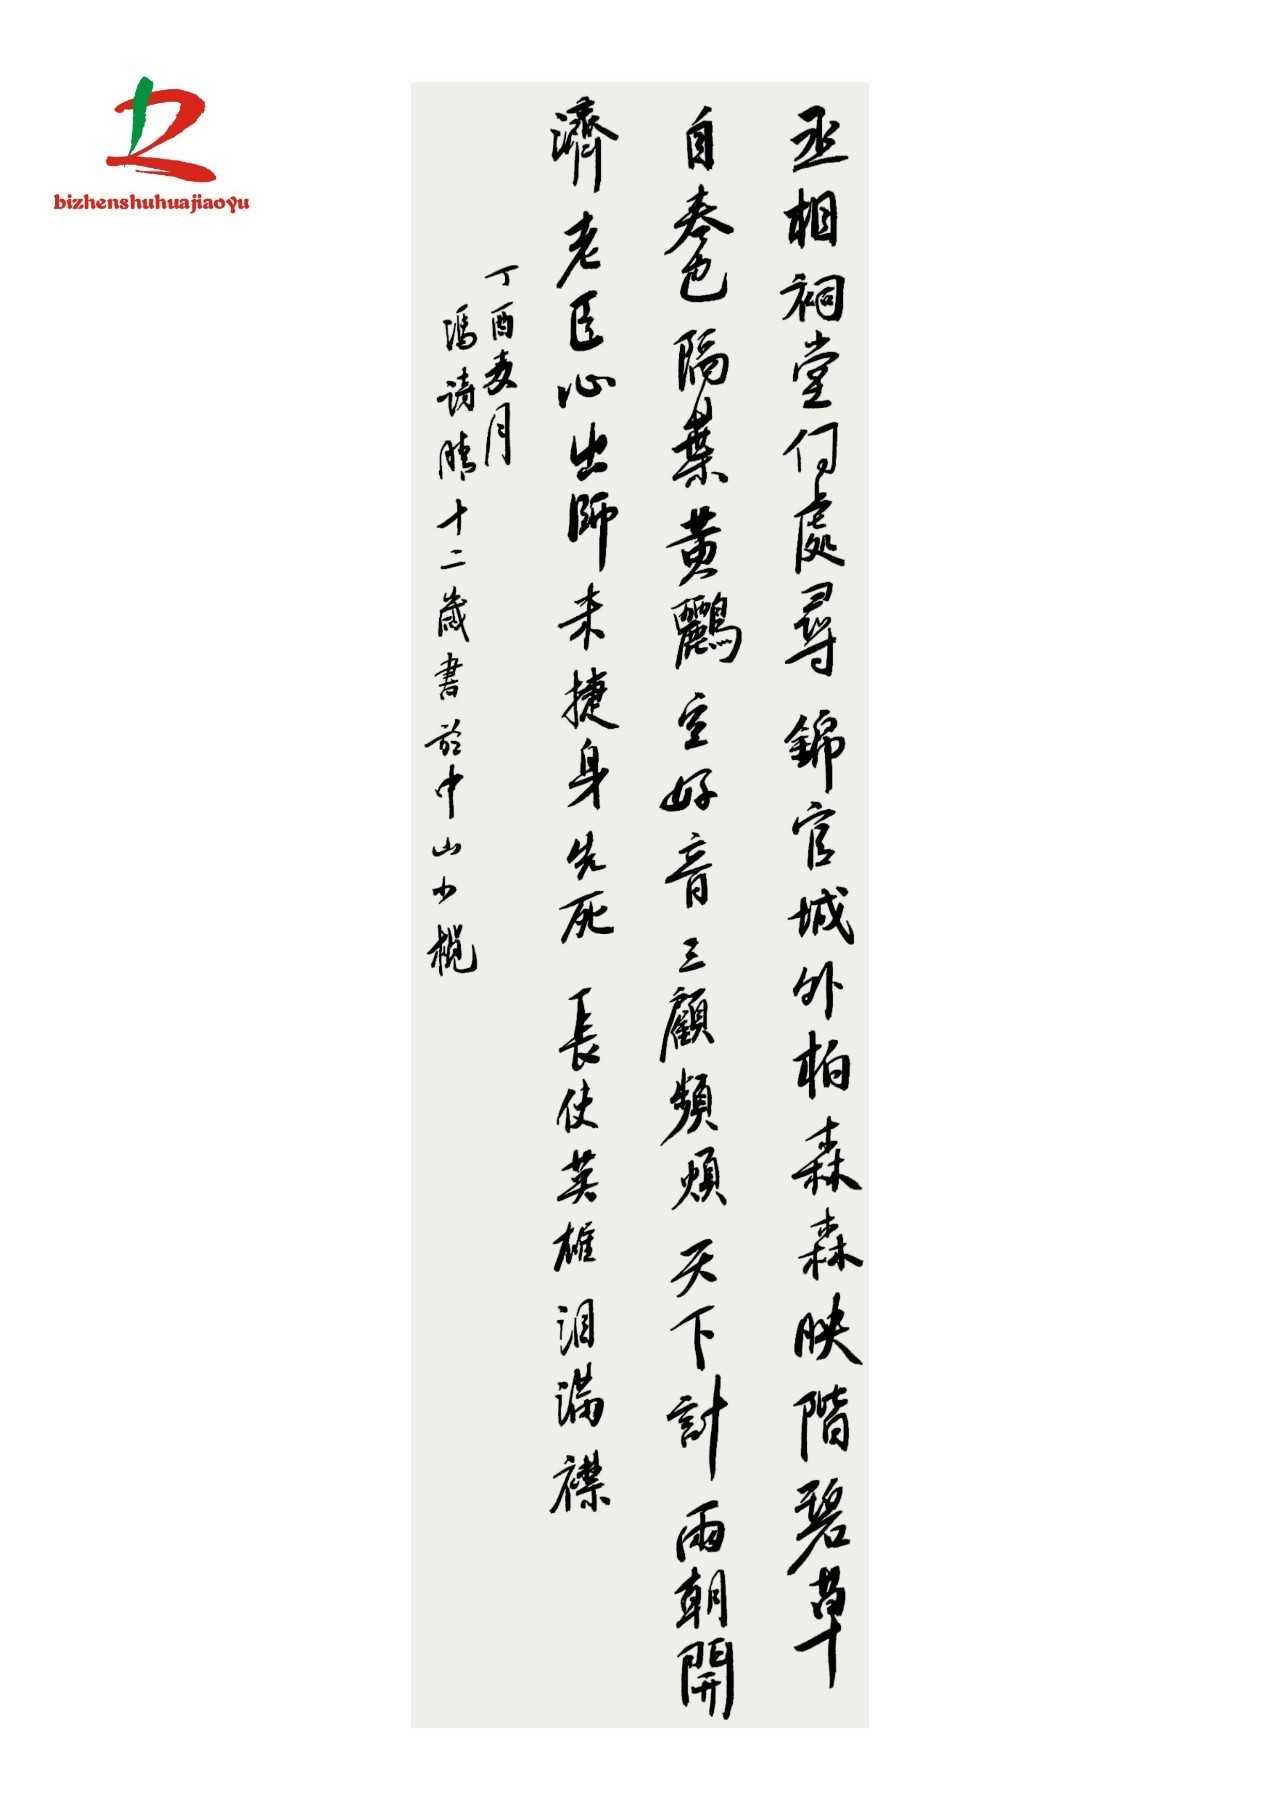 丞相祠堂何處尋錦官城外柏森森映階碧草
自春色隔葉黃鸝空好音三顧頻煩天下計兩朝開
濟老臣心出師未捷身先死長使英雄泪滿襟
丁酉夏月
馮詩晴十二歲書於中山小榄
bizhenshuhuajiaoyu